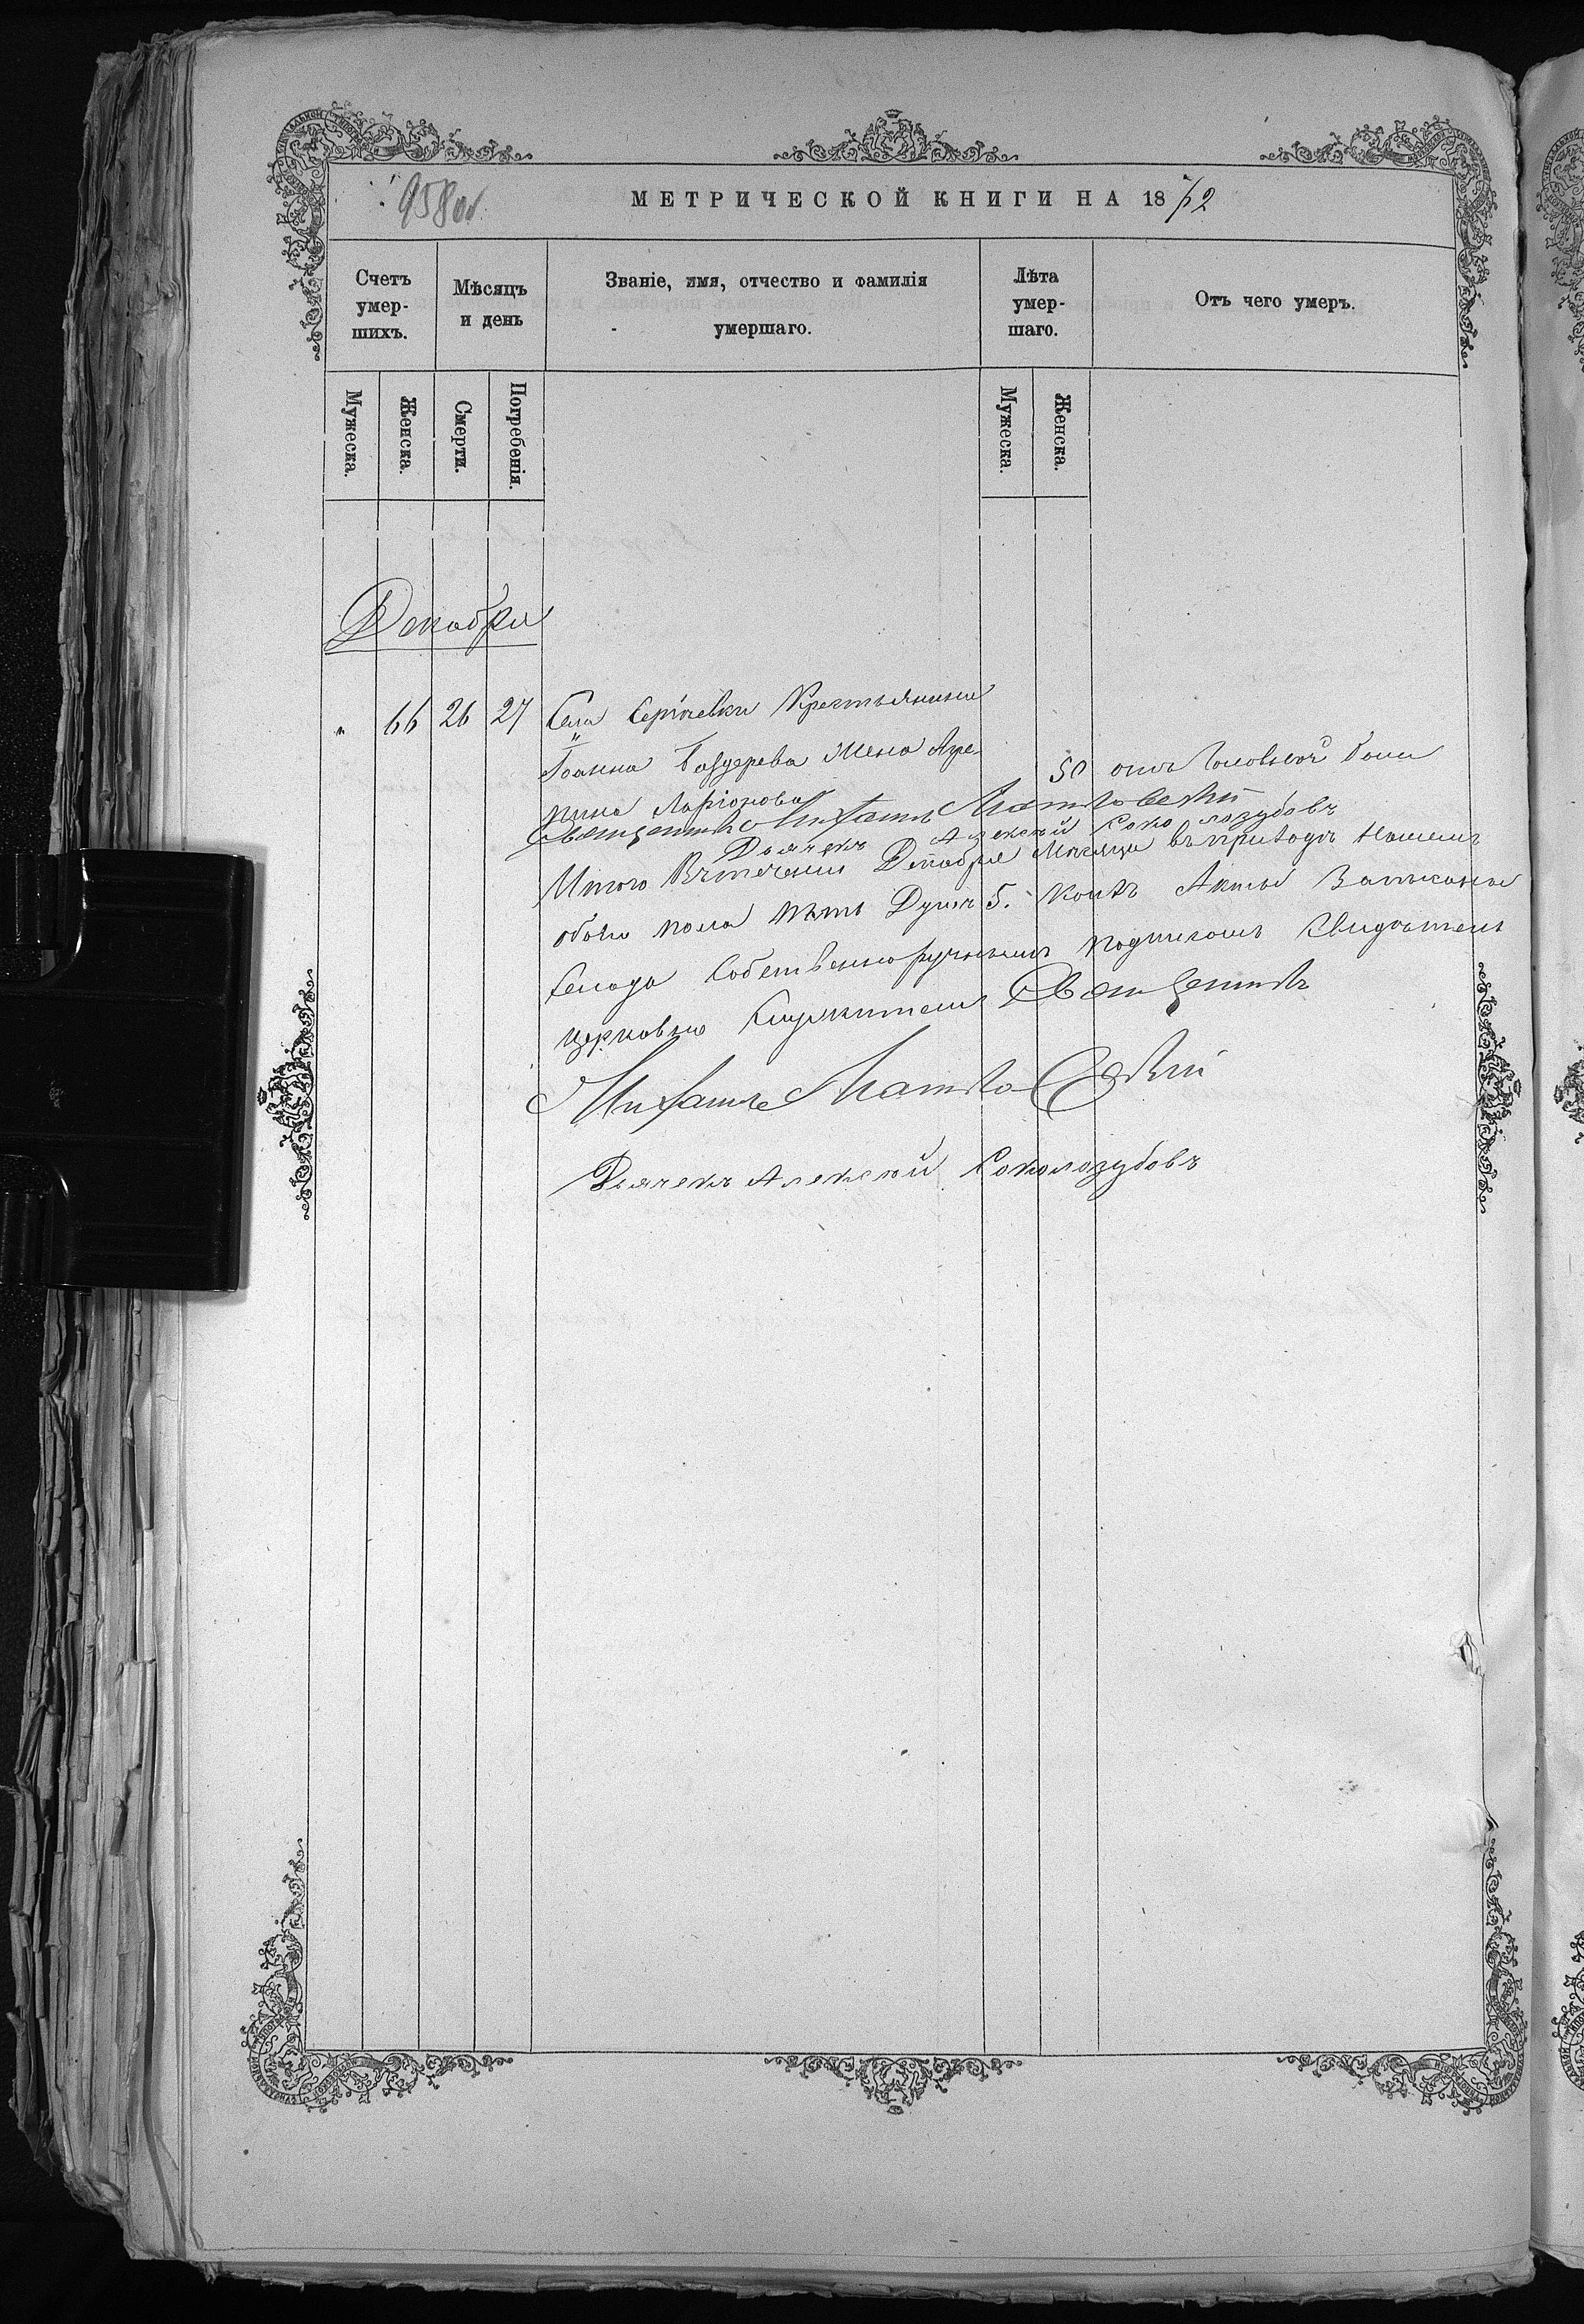 958 об.
МЕТРИЧЕСКОЙ КНИГИ НА 1872
Счетъ умер-шихъ.
Мѣсяцъ и день
Званіе, имя, отчество и фамилія умершаго.
Лѣта умер-шаго.
Отъ чего умеръ.
Мужеска.
Женска.
Смерти.
Погребенія.
Мужеска.
Женска.
Декабря
" 66 26 27 Села Сергіевки Крестьянина
Іоанна жена Агре-
50 отъ головной боли
пина Ларіонова
Священникъ Михаилъ
Дьячекъ Алексѣй Сокологубовъ
Итого Втеченіи Декабря Мѣсяца въ приходѣ Нашемъ
обоего пола пять Душъ 5. Акты Записаны
Сего года Собственноручнымъ подписомъ Свидѣтель
церковно Служители Священникъ
Михаилъ
Дьячекъ Алексѣй Сокологубовъ